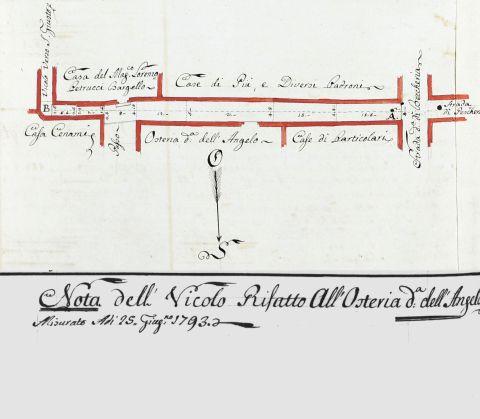 Vicolo Verso S. Giusto
Casa del Mag.co Lorenzo
Petrucci Bargello
Case di Più e Diversi Padroni
Strada d.a di Beccheria
Strada
B
A
Casa Cenami
Osteria d.a dell'Angelo
Case di Particolari
O
S
Nota dell' Vicolo Rifatto All'Osteria d.a dell'Angelo
Misurato Adì 25. Giug.no 1793.